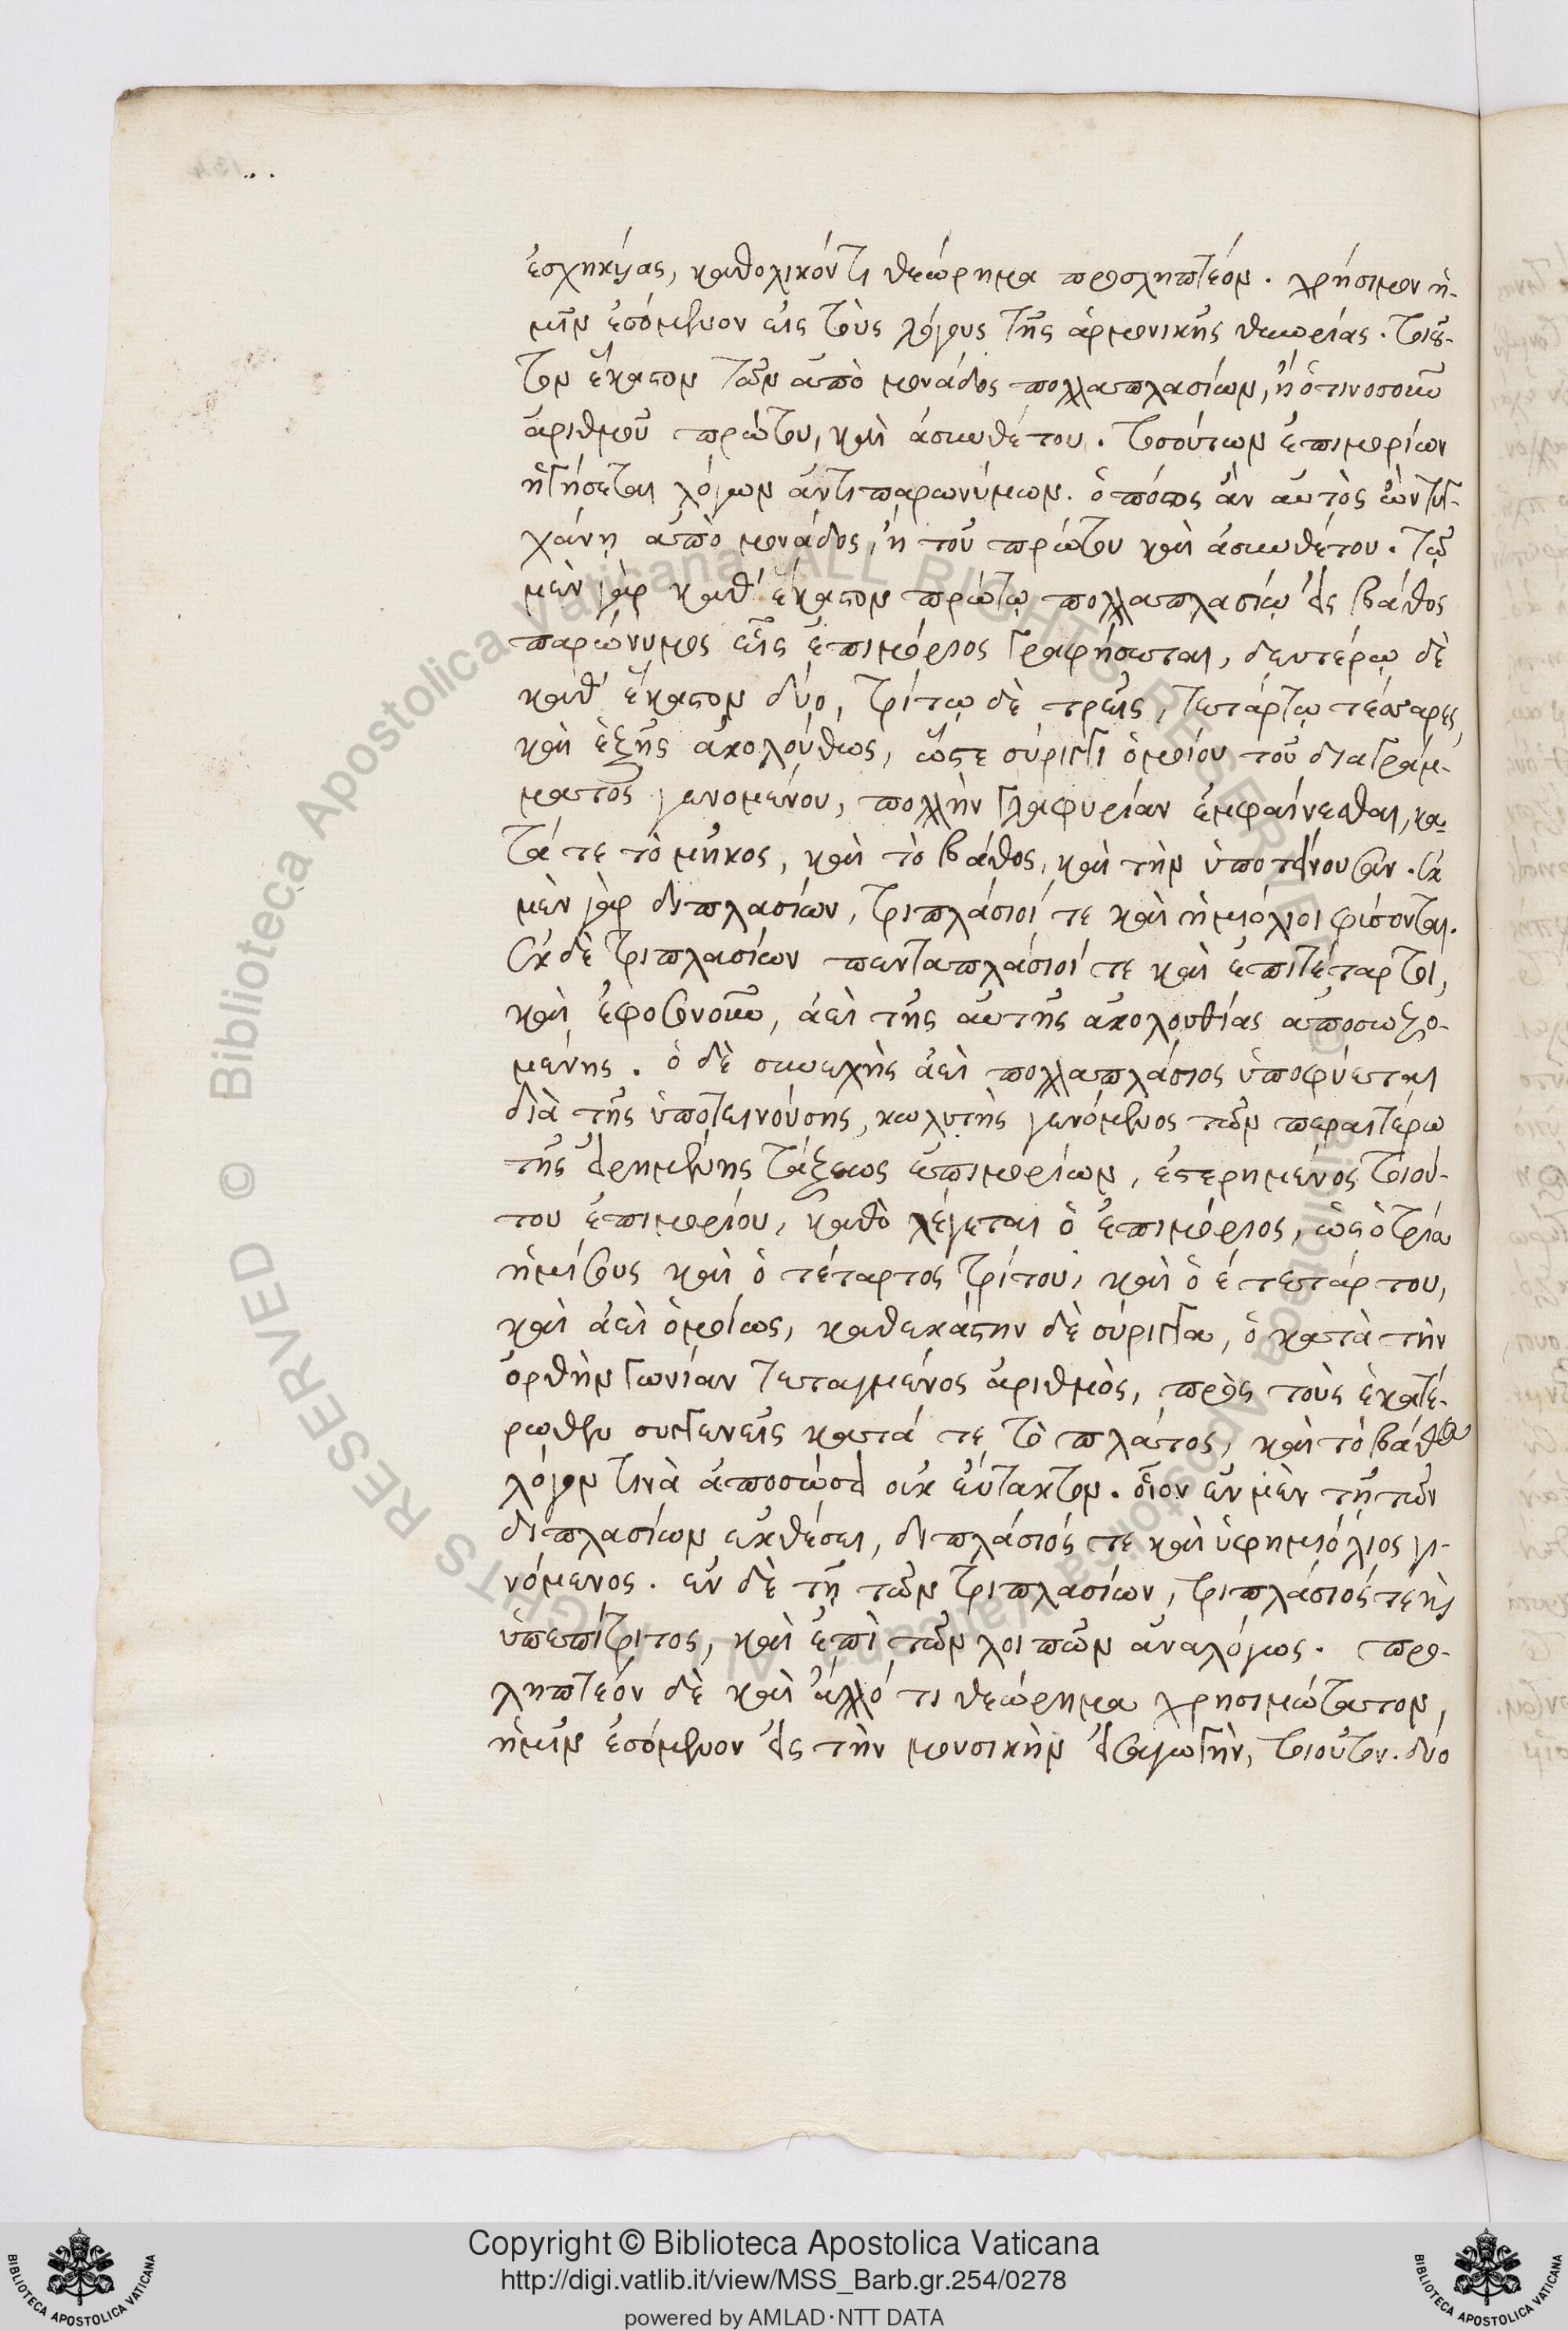 ἐσχηκυίας, καθολικόν τι θεώρημα προσληπτέον. χρήσιμον ἡ-
μῖν ἐσόμενον εἰς τοὺς λόγους τῆς ἁρμονικῆς θεωρίας. τοιοῦ-
τον ἕκαστον τῶν ἀπὸ μονάδος πολλαπλασίων, ἢ ὁτινοσοῦν
ἀριθμοῦ πρώτου, καὶ ἀσυνθέτου. τοσούτων ἐπιμορίων
ἡγήσεται λόγων ἀντιπαρωνύμων. ὁπόστος ἂν αὐτὸς ὢν τυγ-
χάνῃ ἀπὸ μονάδος, ἢ τοῦ πρώτου καὶ ἀσυνθέτου. τῷ
μὲν γὰρ καθ' ἕκαστον πρώτῳ πολλαπλασίῳ εἰς βάθος
παρώνυμος εἷς ἐπιμόριος γραφήσεται, δευτέρῳ δὲ
καθ' ἕκαστον δύο, τρίτῳ δὲ τρεῖς, τετάρτῳ τέσσαρες
καὶ ἑξῆς ἀκολούθως, ὥστε σύριγγι ὁμοίου τοῦ διαγράμ-
ματος γενομένου, πολλὴν γλαφυρίαν ἐμφαίνεσθαι, κα-
τά τε τὸ μῆκος, καὶ τὸ βάθος, καὶ τὴν ὑποτείνουσαν. ἐκ
μὲν γὰρ διπλασίων, τριπλάσιοί τε καὶ ἡμιόλιοι φύσονται.
ἐκ δὲ τριπλασίων πενταπλάσιοί τε καὶ ἐπιτέταρτοι,
καὶ ἐφ' ὁσονοῦν, ἀεὶ τῆς αὐτῆς ἀκολουθίας ἀποσωζο-
μένης. ὁ δὲ συνεχὴς ἀεὶ πολλαπλάσιος ὑποφύεται
διὰ τῆς ὑποτεινούσης, κωλυτὴς γενόμενος τῶν περαιτέρω
τῆς εἰρημένης τάξεως ἐπιμορίων, ἐστερημένος τοιού-
του ἐπιμορίου, καθὸ λέγεται ὁ ἐπιμόριος, ὡς ὁ τρία
ἡμίσους καὶ ὁ τέταρτος τρίτου, καὶ ὁ έ τετάρτου,
καὶ ἀεὶ ὁμοίως, καθεκάστην δὲ σύριγγα, ὁ κατὰ τὴν
ὀρθὴν γωνίαν τεταγμένος ἀριθμὸς, πρὸς τοὺς ἑκατέ-
ρωθεν συγγενεῖς κατά τε τὸ πλάτος, καὶ τὸ βάθος
λόγον τινὰ ἀποσώσει οὐκ εὔτακτον. οἷον ἐν μὲν τῇ τῶν
διπλασίων ἐκθέσει, διπλάσιός τε καὶ ὑφημιόλιος γι-
νόμενος. ἐν δὲ τῇ τῶν τριπλασίων, τριπλάσιός τε καὶ
ὑπεπίτριτος, καὶ ἐπὶ τῶν λοιπῶν ἀναλόγως. προ-
ληπτέον δὲ καὶ ἄλλό τι θεώρημα χρησιμώτατον,
ἡμῖν ἐσόμενον εἰς τὴν μουσικὴν εἰσαγωγὴν, τοιοῦτον. δύο
Copyright © Biblioteca Apostolica Vaticana
http://digi.vatlib.it/view/MSS_Barb.gr.254/0278
powered by AMLAD·NTT DATA